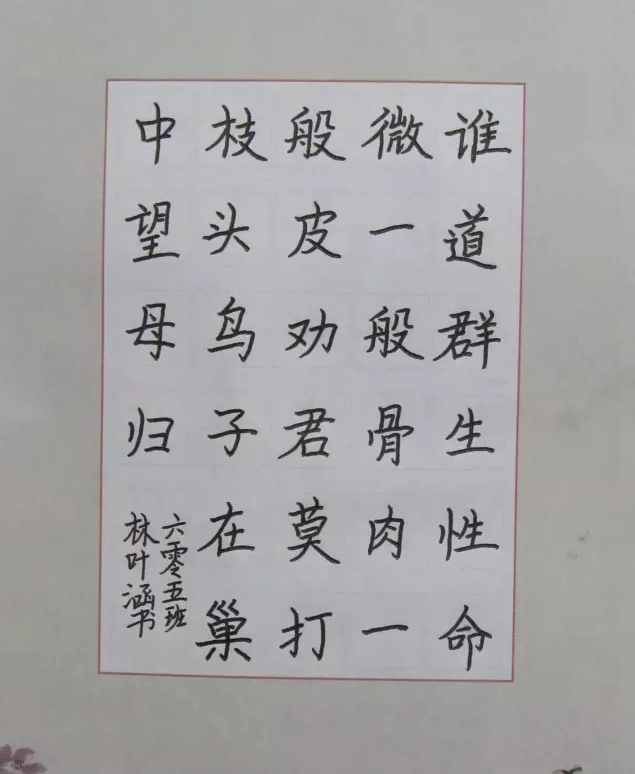 谁道群生性命
微一般骨肉一
般皮劝君莫打
枝头鸟子在巢
中望母归
六零五班
林叶涵书